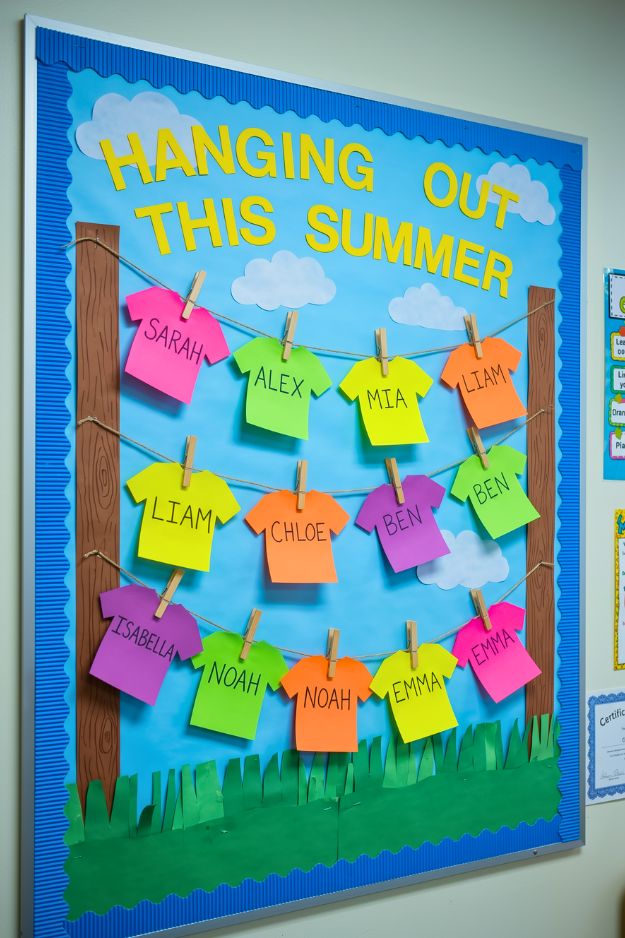 HANGING OUT
THIS SUMMER
SARAH
ALEX
MIA
LIAM
LIAM
CHLOE
BEN
BEN
ISABELLA
NOAH
NOAH
EMMA
EMMA